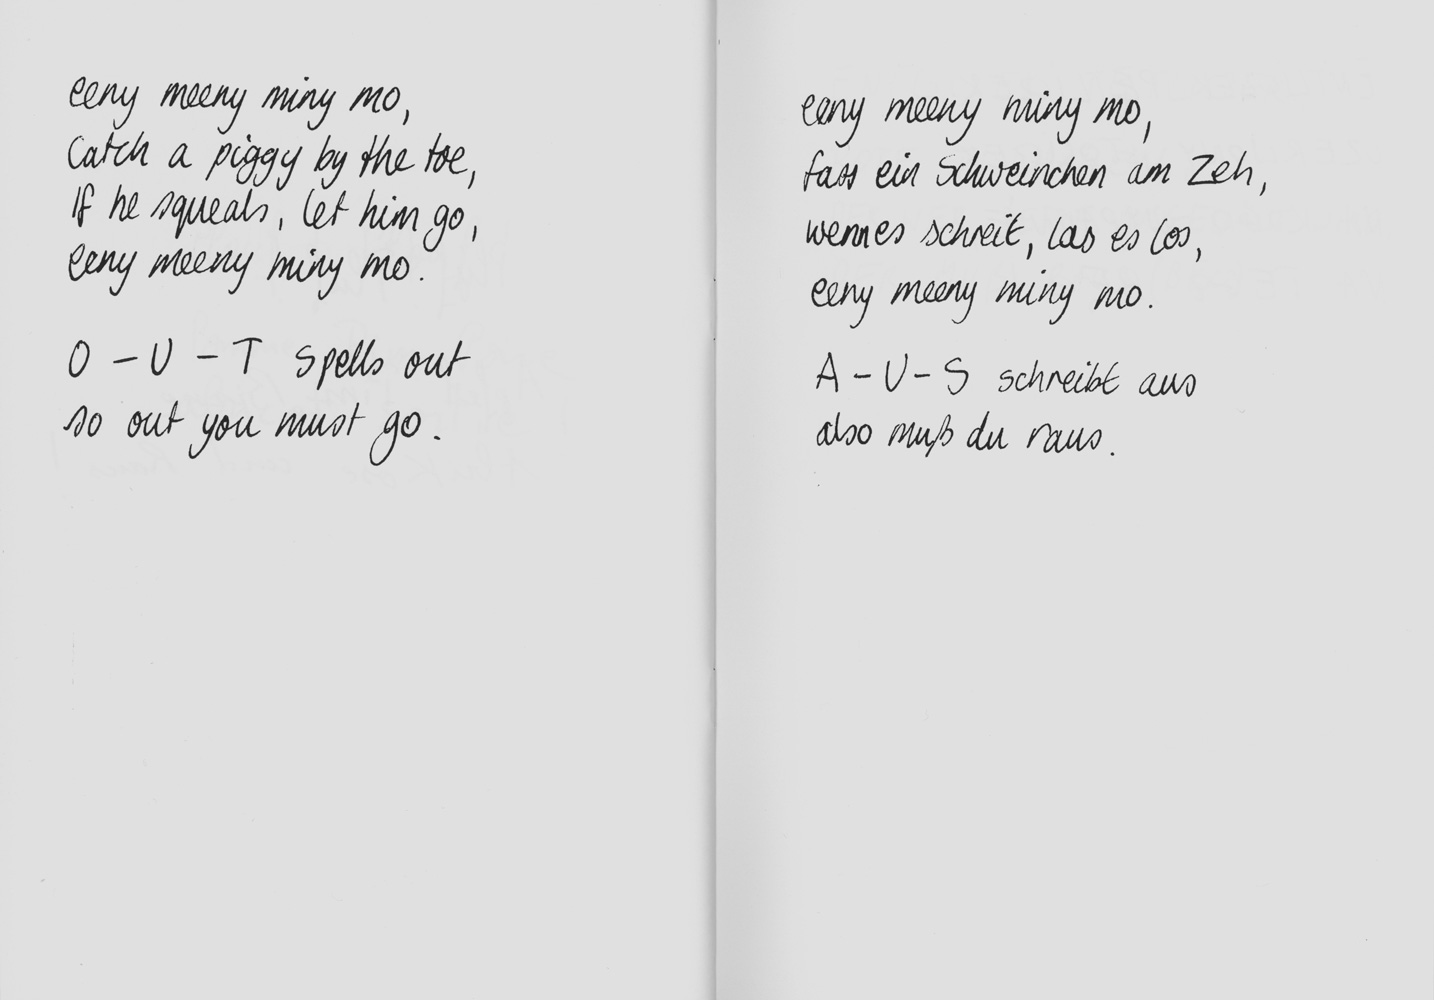 eeny meeny miny mo,
Catch a piggy by the toe,
If he squeals, let him go,
eeny meeny miny mo.
O - U - T spells out
so out you must go.
eeny meeny miny mo,
fass ein Schweinchen am Zeh,
wenn es schreit, las es los,
eeny meeny miny mo.
A - U - S schreibt aus
also muß du raus.